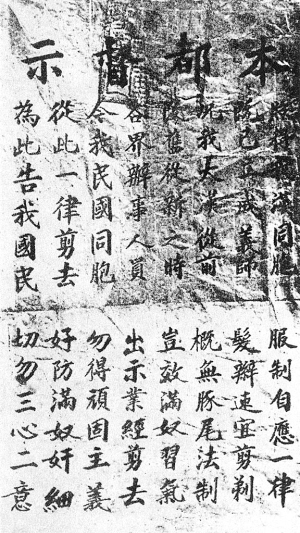 本都督示
照得漢同胞 服制自應一律
既已立成義師 髮辮速宜剪剃
況我大漢從前 概無豚尾法制
除舊從新之時 豈效滿奴習氣
各界辦事人員 出示業經剪去
令我民國同胞 勿得頑固主義
從此一律剪去 好防滿奴奸細
為此告我國民 切勿三心二意